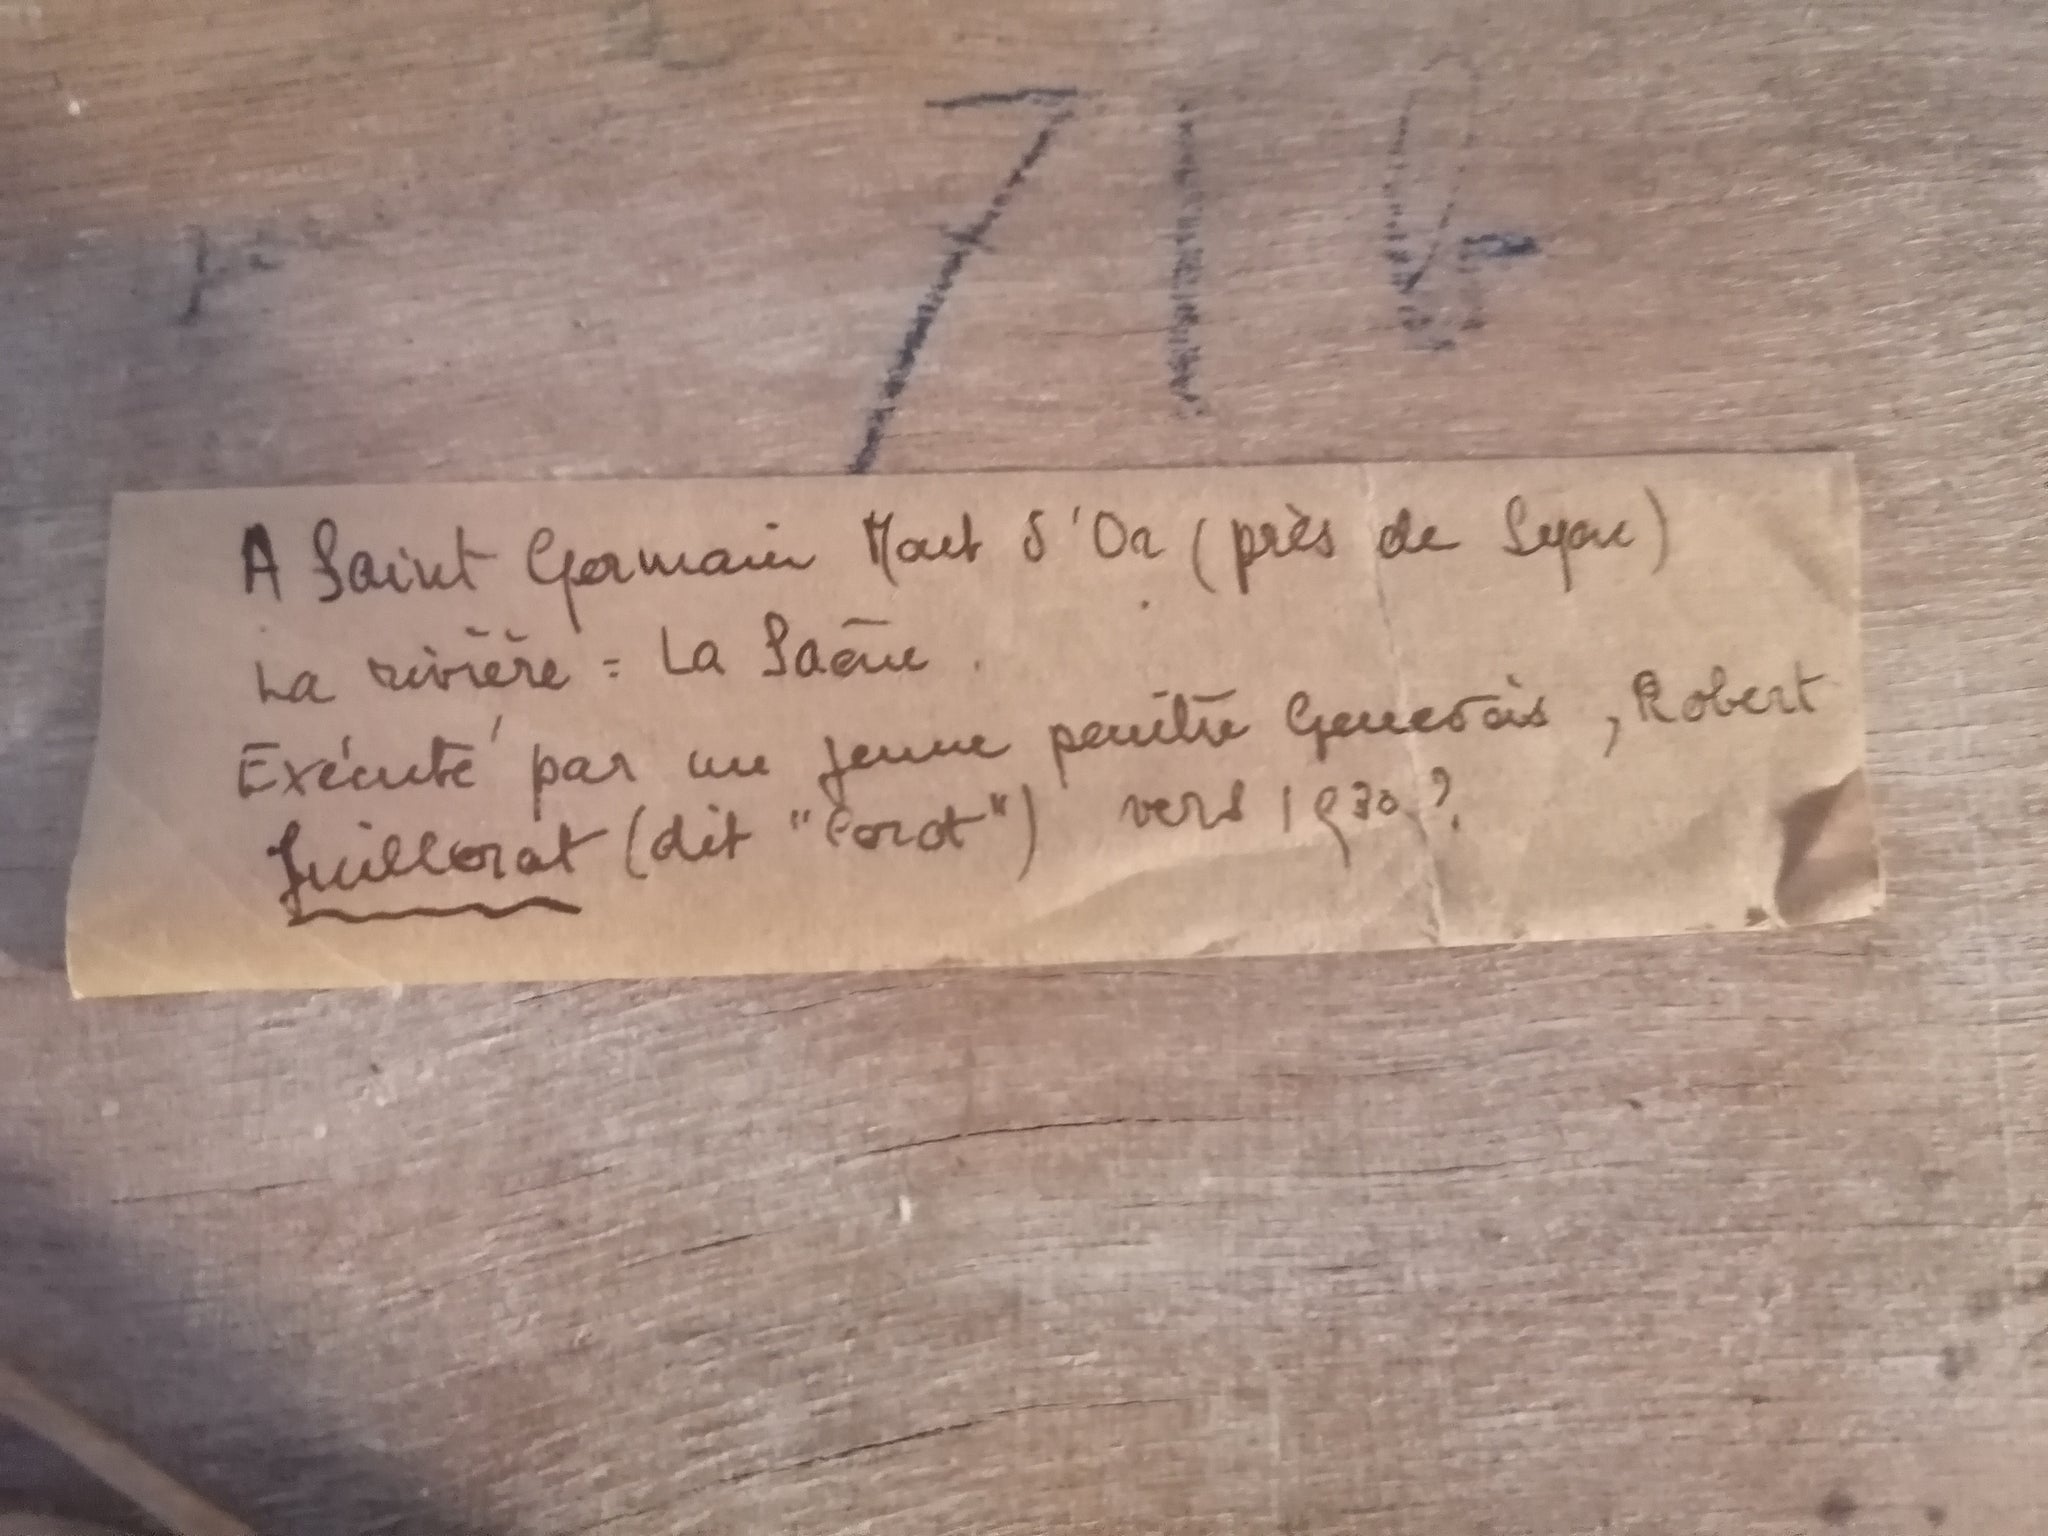 716
A Saint Germain Mont d'Or (près de Lyon)
La rivière = La Saône.
Exécuté par un jeune peintre Genevois, Robert
Guillorat (dit "Corot") vers 1930?